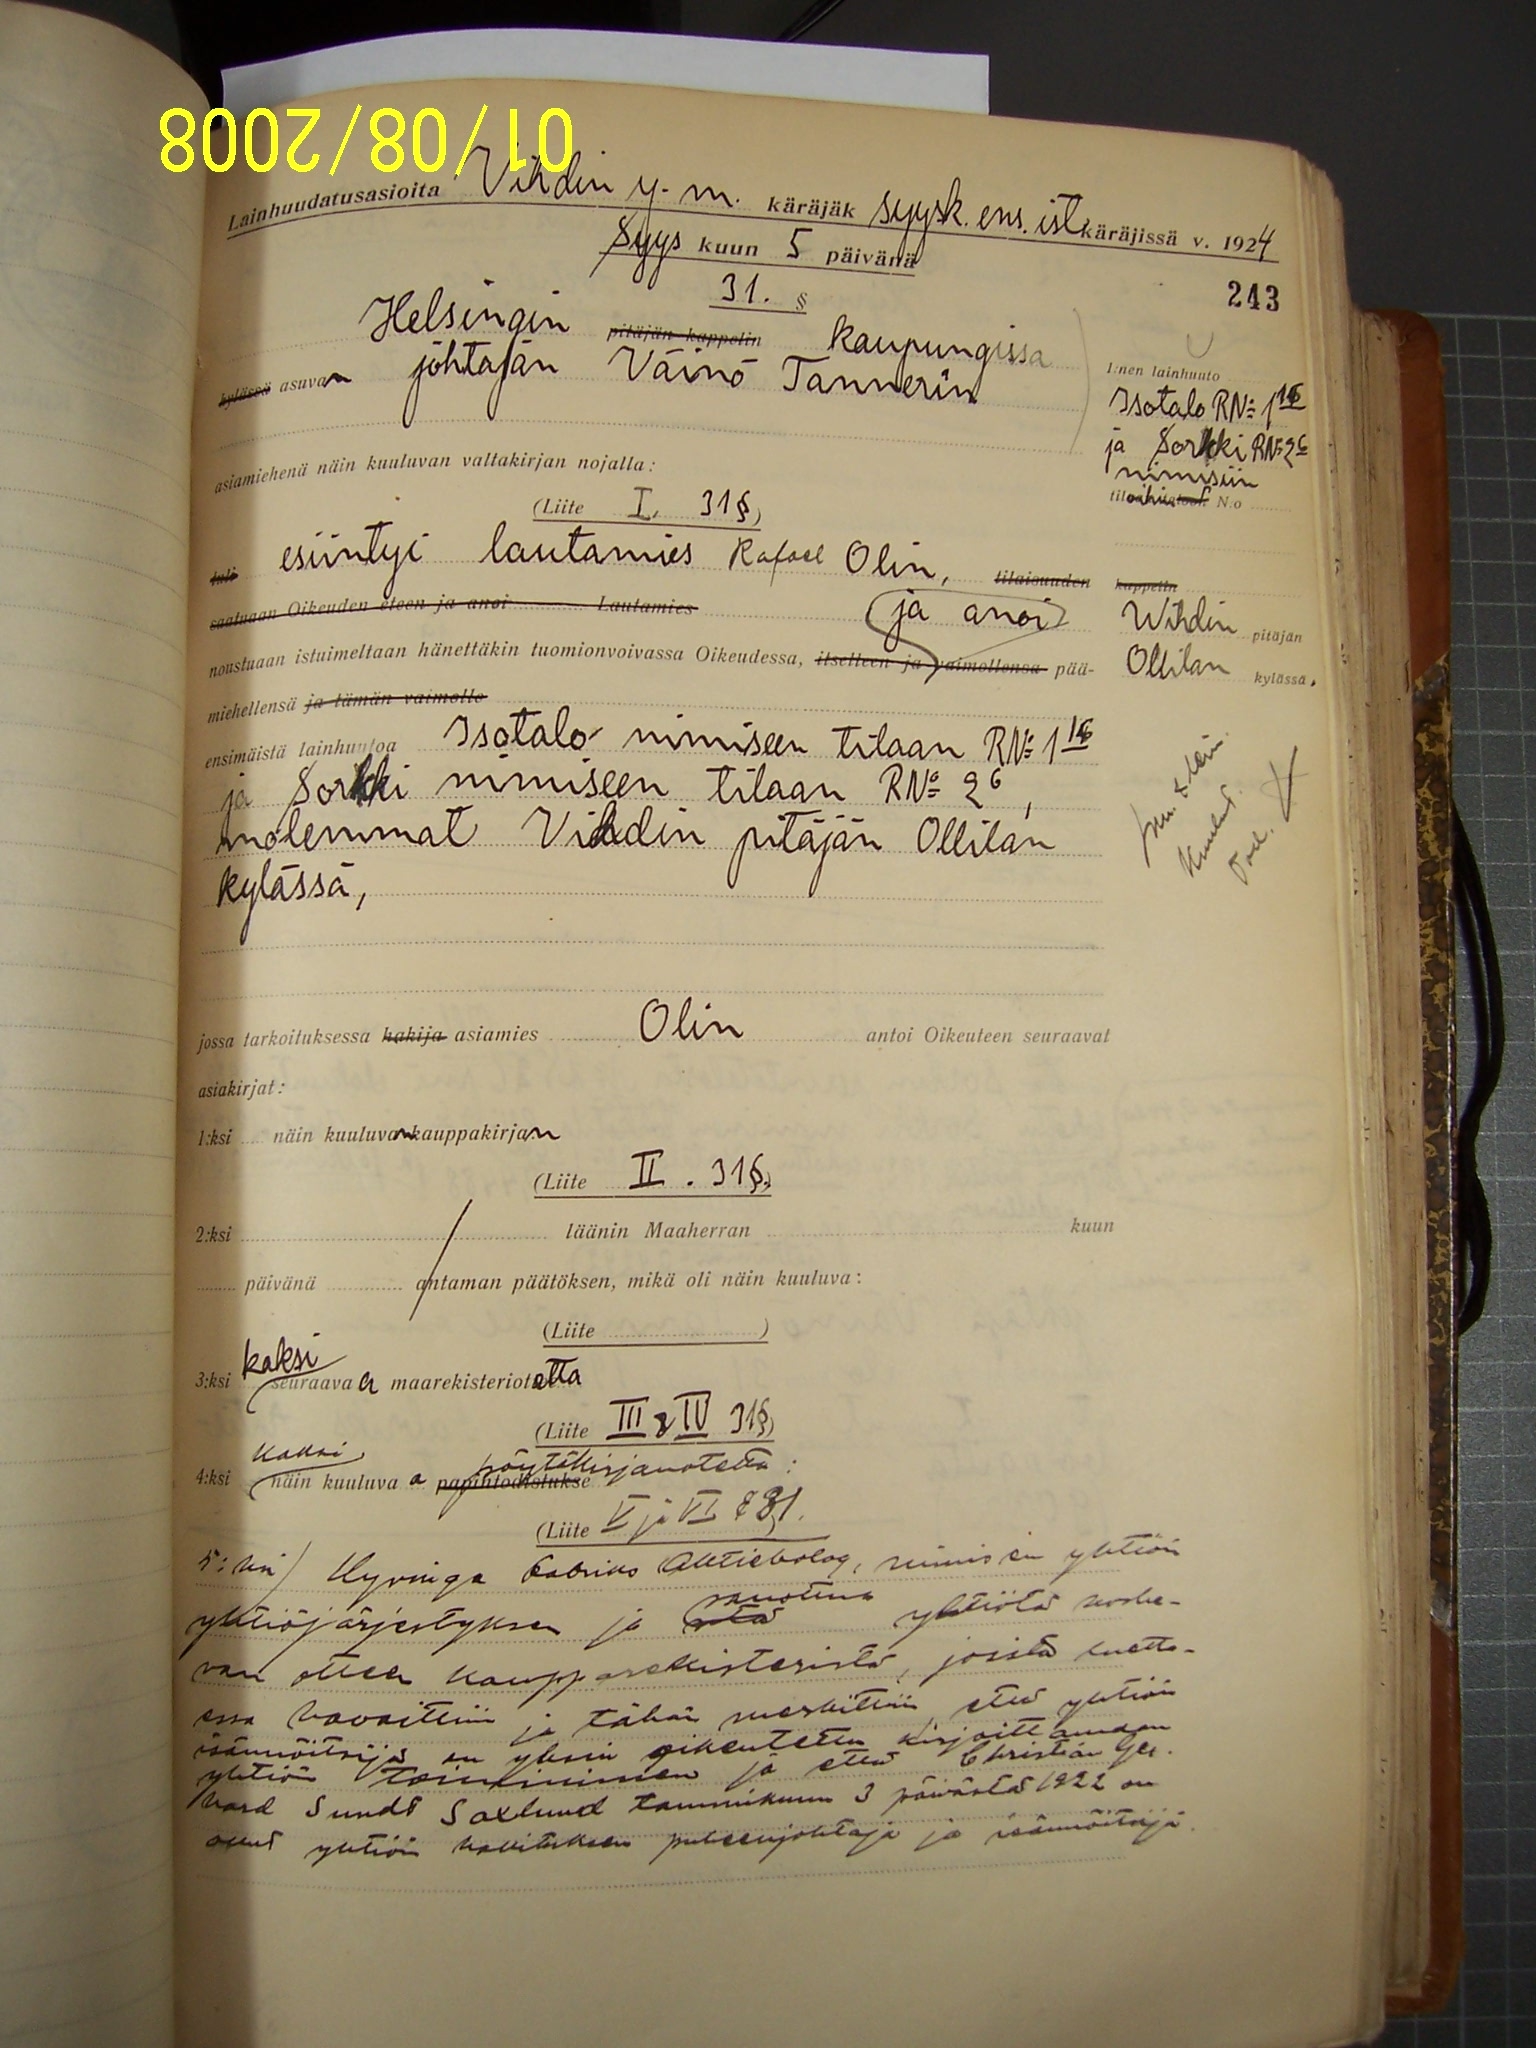 01/08/2008
Lainhuudatusasioita Vihdin y. m. käräjäk syysk. ens. ist. käräjissä v. 1924
Syys kuun 5 päivänä
243
31. §
Helsingin pitäjän kappelin kaupungissa
kylässä asuvan johtajan Väinö Tannerin
1:nen lainhuuto
Isotalo RN:o 1 16
ja Sorkki RN:o 2 6
nimisiin
tiloihin N:o
asiamiehenä näin kuuluvan valtakirjan nojalla:
(Liite I. 31 §)
tuli esiintyi lautamies Rafael Olin, tilaisuuden
saatuaan Oikeuden eteen ja anoi Lautamies ja anoi
kappelin
Wihdin pitäjän
Ollilan kylässä.
noustuaan istuimeltaan hänettäkin tuomionvoivassa Oikeudessa, itselleen ja vaimollensa pää-
miehellensä ja tämän vaimolle
ensimäistä lainhuutoa Isotalo nimiseen tilaan RN:o 1 16
ja Sorkki nimiseen tilaan RN:o 2 6,
molemmat Vihdin pitäjän Ollilan
kylässä,
jossa tarkoituksessa hakija asiamies Olin antoi Oikeuteen seuraavat
asiakirjat:
1:ksi näin kuuluvan kauppakirjan
(Liite II. 31 §.)
2:ksi läänin Maaherran kuun
päivänä antaman päätöksen, mikä oli näin kuuluva:
(Liite )
kaksi
3:ksi seuraavaa maarekisteriotetta
(Liite III & IV 31 §)
kaksi pöytäkirjanotetta:
4:ksi näin kuuluvaa papintodistukse
(Liite V ja VI § 31.
5:ksi) Hyvinge Fabriks Aktiebolag, nimisen yhtiön
yhtiöjärjestyksen ja sanottua yhtiötä koske-
van otteen kaupparekisteristä, joista luetta-
essa havaittiin ja tähän merkittiin, että yhtiön
isännöitsijä on yksin oikeutettu kirjoittamaan
yhtiön toiminimen ja että Christian Ger-
hard Sundt Saxlund tammikuun 3 päivästä 1922 on
ollut yhtiön hallituksen puheenjohtaja ja isännöitsijä.